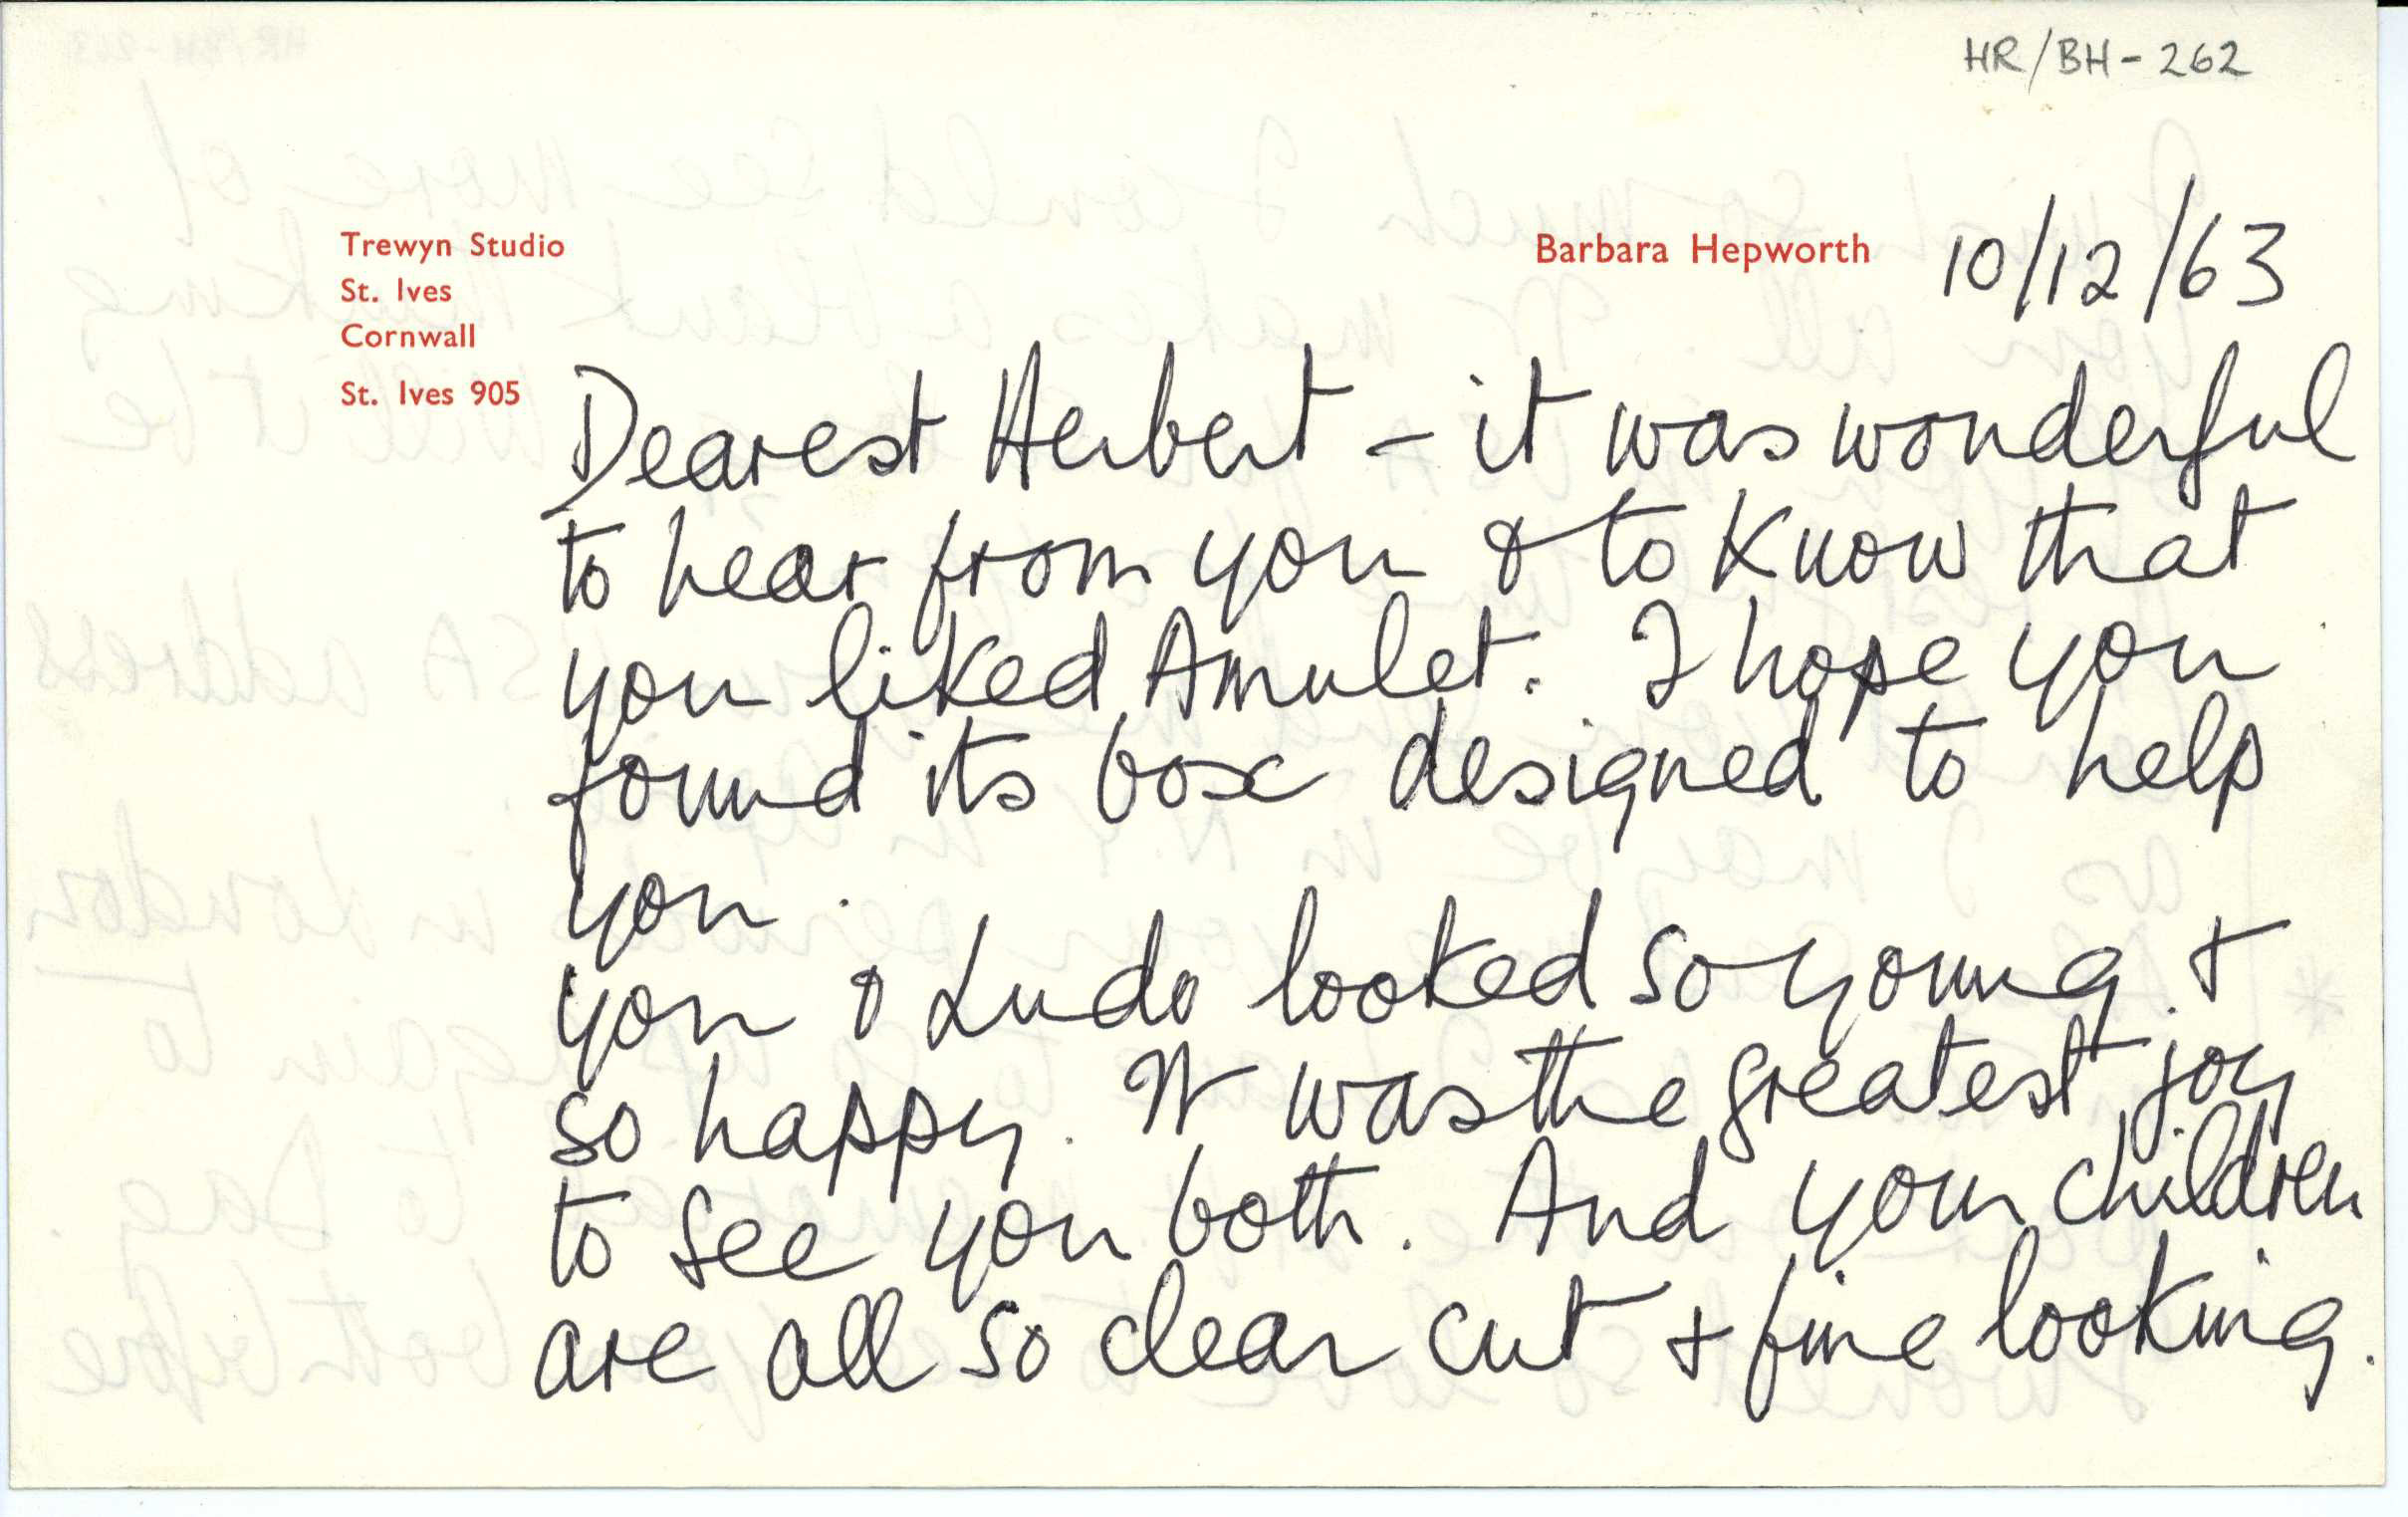 HR/BH-262
Trewyn Studio
St. Ives
Cornwall
St. Ives 905
Barbara Hepworth
10/12/63
Dearest Herbert – it was wonderful
to hear from you & to know that
you liked Amulet. I hope you
found its box designed to help
you.
you & Ludo looked so young. +
so happy. It was the greatest joy
to see you both. And your children
are all so clear cut + fine looking.